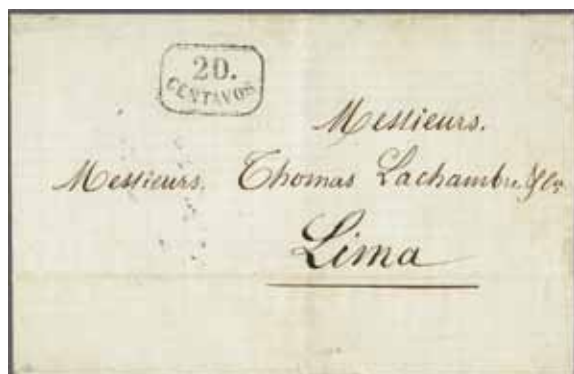 20.
CENTAVOS
Messieurs.
Messieurs. Thomas Lachambre &
Lima